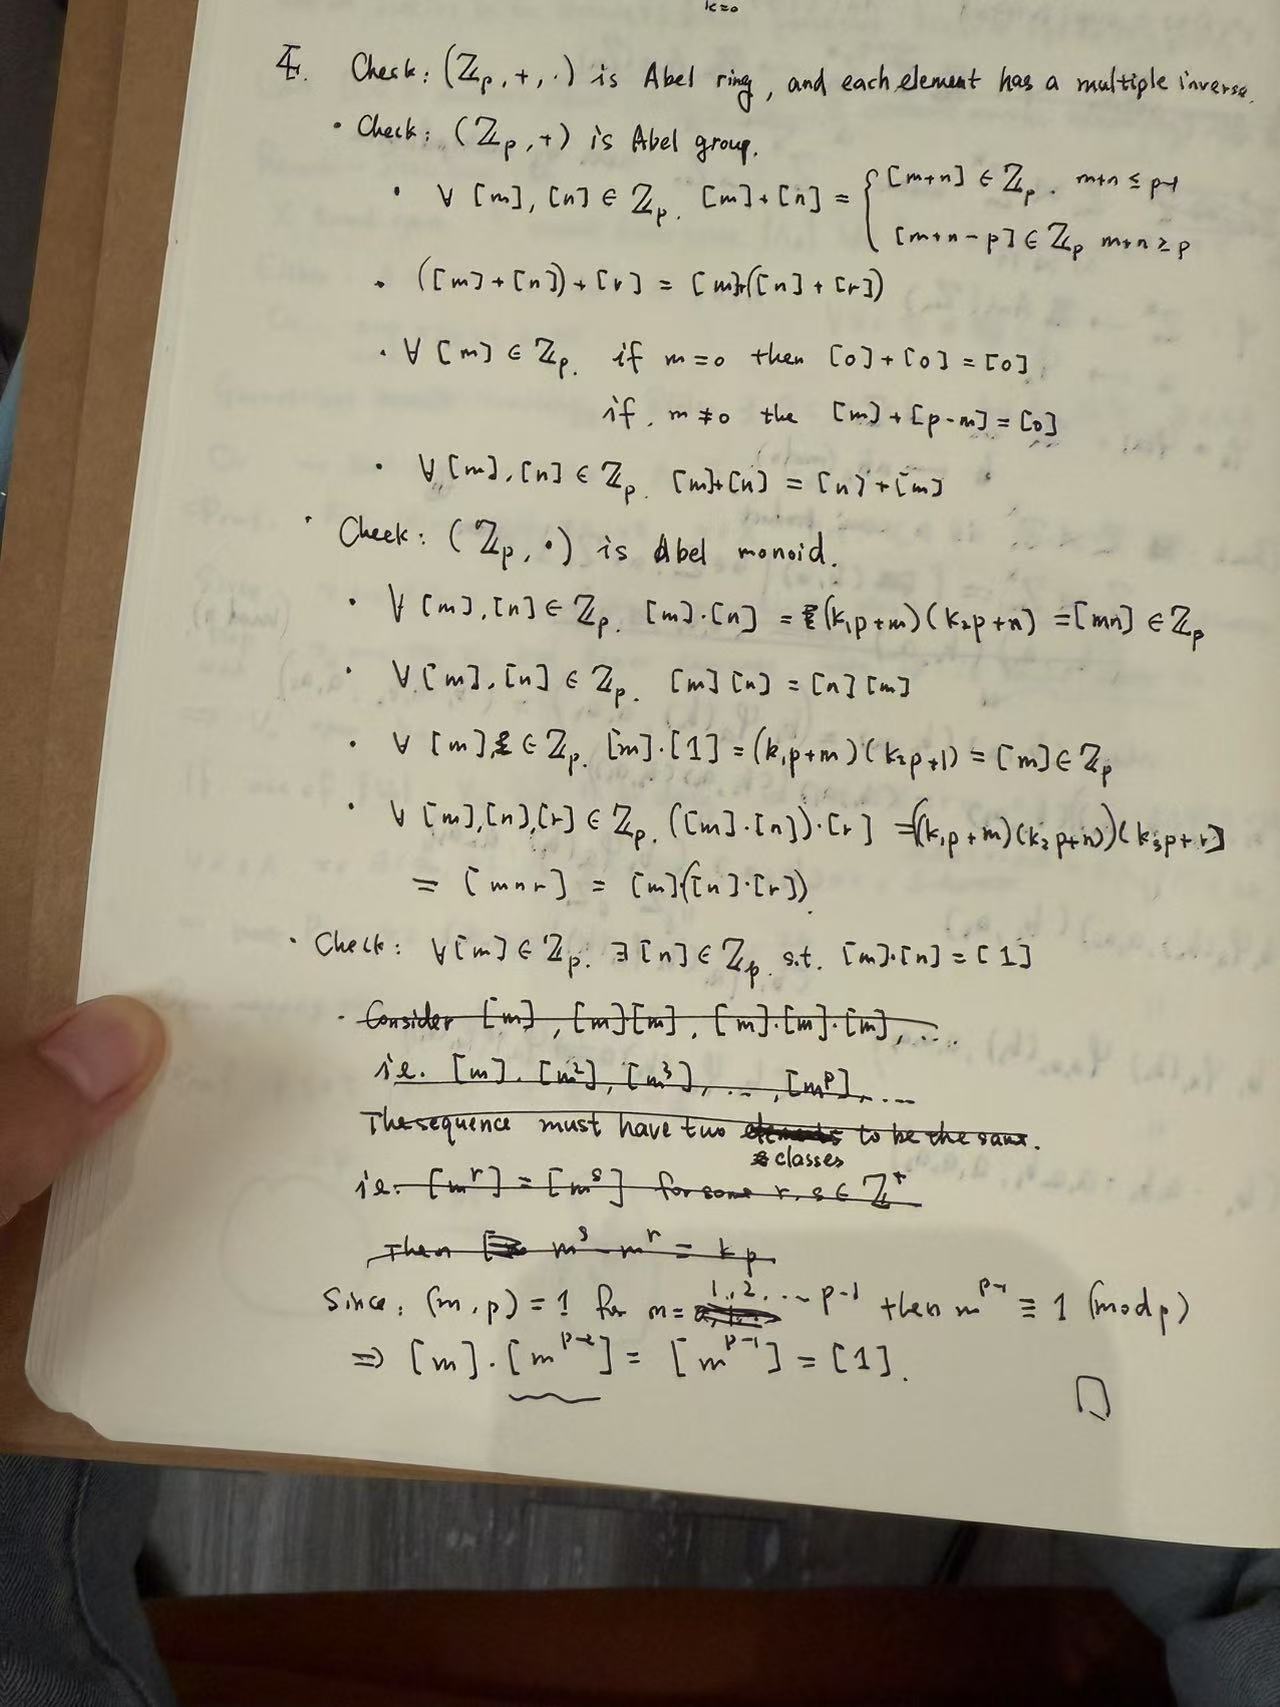 k=0
4. Check: (ℤp, +, ·) is Abel ring, and each element has a multiple inverse.
· Check: (ℤp, +) is Abel group.
· ∀ [m], [n] ∈ ℤp. [m] + [n] = { [m+n] ∈ ℤp. m+n ≤ p-1
[m+n-p] ∈ ℤp m+n ≥ p
· ([m] + [n]) + [r] = [m]+([n] + [r])
· ∀ [m] ∈ ℤp. if m=0 then [0] + [0] = [0]
if. m≠0 the [m] + [p-m] = [0]
· ∀ [m], [n] ∈ ℤp. [m]+[n] = [n] + [m]
· Check: (ℤp, ·) is Abel monoid.
· ∀ [m], [n] ∈ ℤp. [m]·[n] = (k₁p+m)(k₂p+n) = [mn] ∈ ℤp
· ∀ [m], [n] ∈ ℤp. [m][n] = [n][m]
· ∀ [m] ∈ ℤp. [m]·[1] = (k₁p+m)(k₂p+1) = [m] ∈ ℤp
· ∀ [m],[n],[r] ∈ ℤp. ([m]·[n])·[r] = ((k₁p+m)(k₂p+n))(k₃p+r]
= [mnr] = [m]·([n]·[r]).
· Check: ∀[m] ∈ ℤp. ∃[n] ∈ ℤp. s.t. [m]·[n] = [1]
· Consider [m], [m]·[m], [m]·[m]·[m], ...
i.e. [m]. [m²], [m³], ..., [m^p], ...
The sequence must have two elements to be the same.
classes
i.e. [m^r] = [m^s] for some r, s ∈ ℤ⁺
Then m^s - m^r = kp
Since: (m, p) = 1 for m = 1, 2, ... p-1 then m^{p-1} ≡ 1 (mod p)
⇒ [m]·[m^{p-2}] = [m^{p-1}] = [1].
□